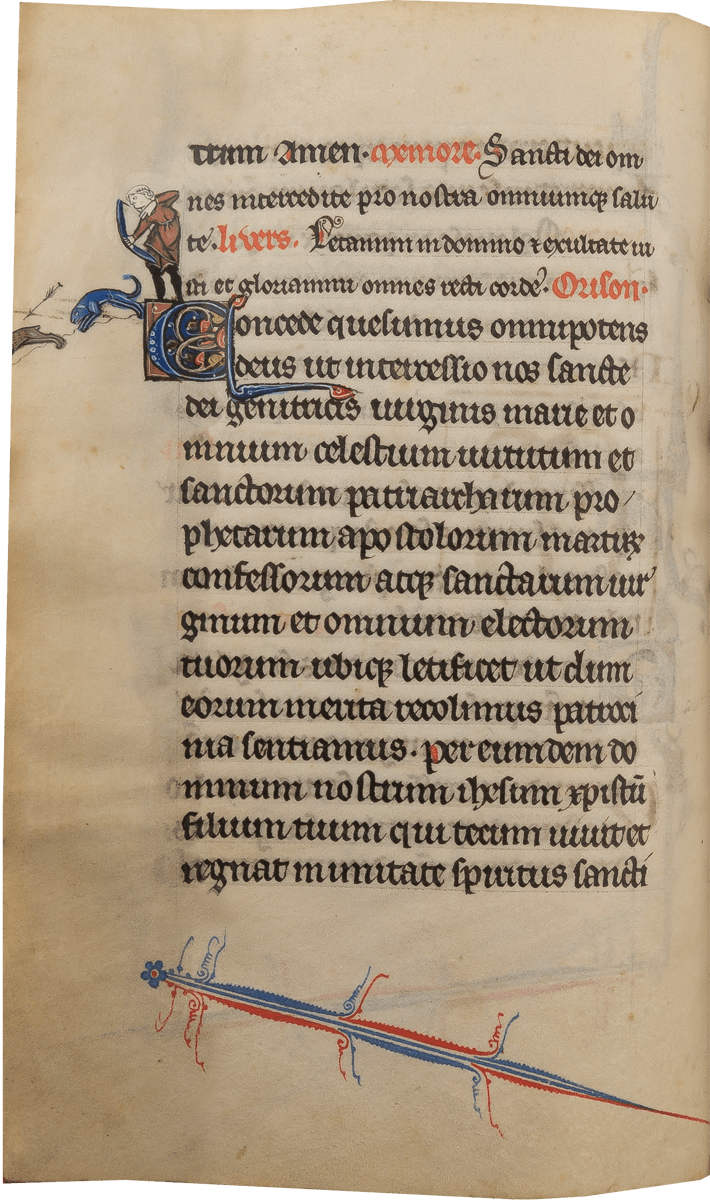 trum Amen. memore. Sancti dei om
nes intercedite pro nostra omniumqꝫ salu
te. li vers. Letamini in domino ⁊ exultate iu
sti et gloriamini omnes recti corde. Orison.
Concede quesumus omnipotens
deus ut intercessio nos sancte
dei genitricis uirginis marie et o
mnium celestium uirtutum et
sanctorum patriarcharum pro
phetarum apostolorum martirꝫ
confessorum atqꝫ sanctarum uir
ginum et omnium electorum
tuorum ubiqꝫ letificet ut dum
eorum merita recolimus patroci
nia sentiamus. per eumdem do
minum nostrum ihesum xpistū
filium tuum qui tecum uiuit et
regnat in unitate spiritus sancti